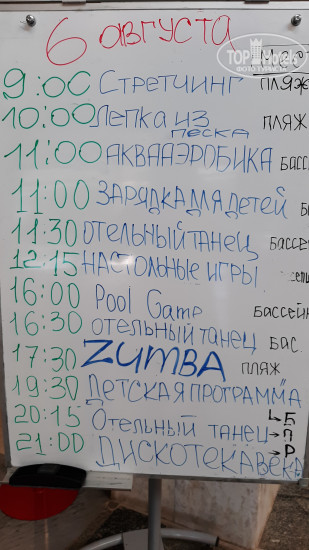 6 августа
TOPHotels
ФОТО ТУРИСТОВ
9:00 Стретчинг пляж
10:00 Лепка из песка пляж
11:00 АКВААЭРОБИКА басс
11:00 ЗАРЯДКА ДЛЯ ДЕТЕЙ б
11:30 ОТЕЛЬНЫЙ ТАНЕЦ бассей
12:15 НАСТОЛЬНЫЕ ИГРЫ
16:00 Pool Game бассейн
16:30 отельный танец бас.
17:30 ZUMBA пляж
19:30 ДЕТСКАЯ ПРОГРАММА
20:15 Отельный танец → Б
→ П
21:00 ДИСКОТЕКА ВЕКА → Р